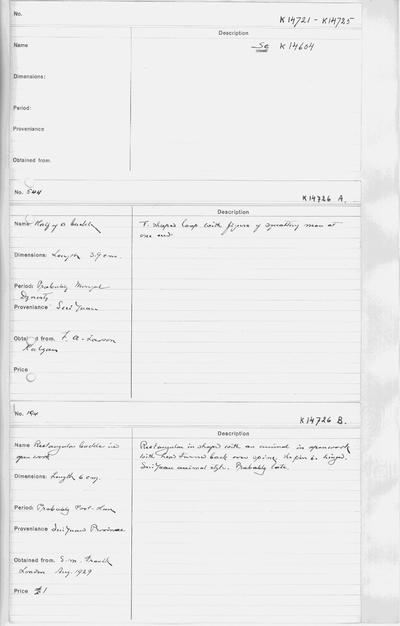 No.
K14721 - K14725
Description
Name
See K14604
Dimensions:
Period:
Provenance
Obtained from.
No. 544
K14726 A.
Description
Name Half of a buckle
T. shaped loop with figure of squatting man at
one end
Dimensions: Length 3.9 cm.
Period: Probably Mongol
Dynasty
Provenance Sui Yuan
Obtained from. F. A. Larson
Kalgan
Price
No. 194
K14726 B.
Description
Name Rectangular buckle in
open work
Rectangular in shape with an animal in openwork
with head turned back over spine, the pin is hinged.
Sui Yuan animal style. Probably late.
Dimensions: Length 6 cm.
Period: Probably Post-Han
Provenance Sui Yuan Province
Obtained from. S. M. Franck
London Aug. 1929
Price £1